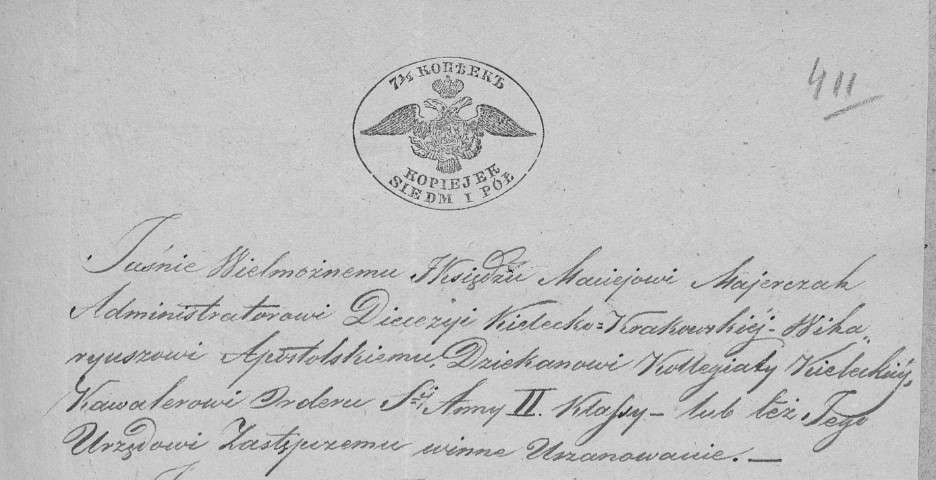 7½ КОПѢЕКЪ
411
KOPIEJEK
SIEDM I PÓŁ
Jaśnie Wielmożnemu Księdzu Maciejowi Majerczak
Administratorowi Diecezyi Kielecko=Krakowskiéj – Wika„
ryuszowi Apostolskiemu, Dziekanowi Kollegiaty Kieleckiéj,
Kawalerowi Orderu Stéj Anny II. Klassy – lub téż Jego
Urzędowi Zastępczemu winne Uszanowanie. —